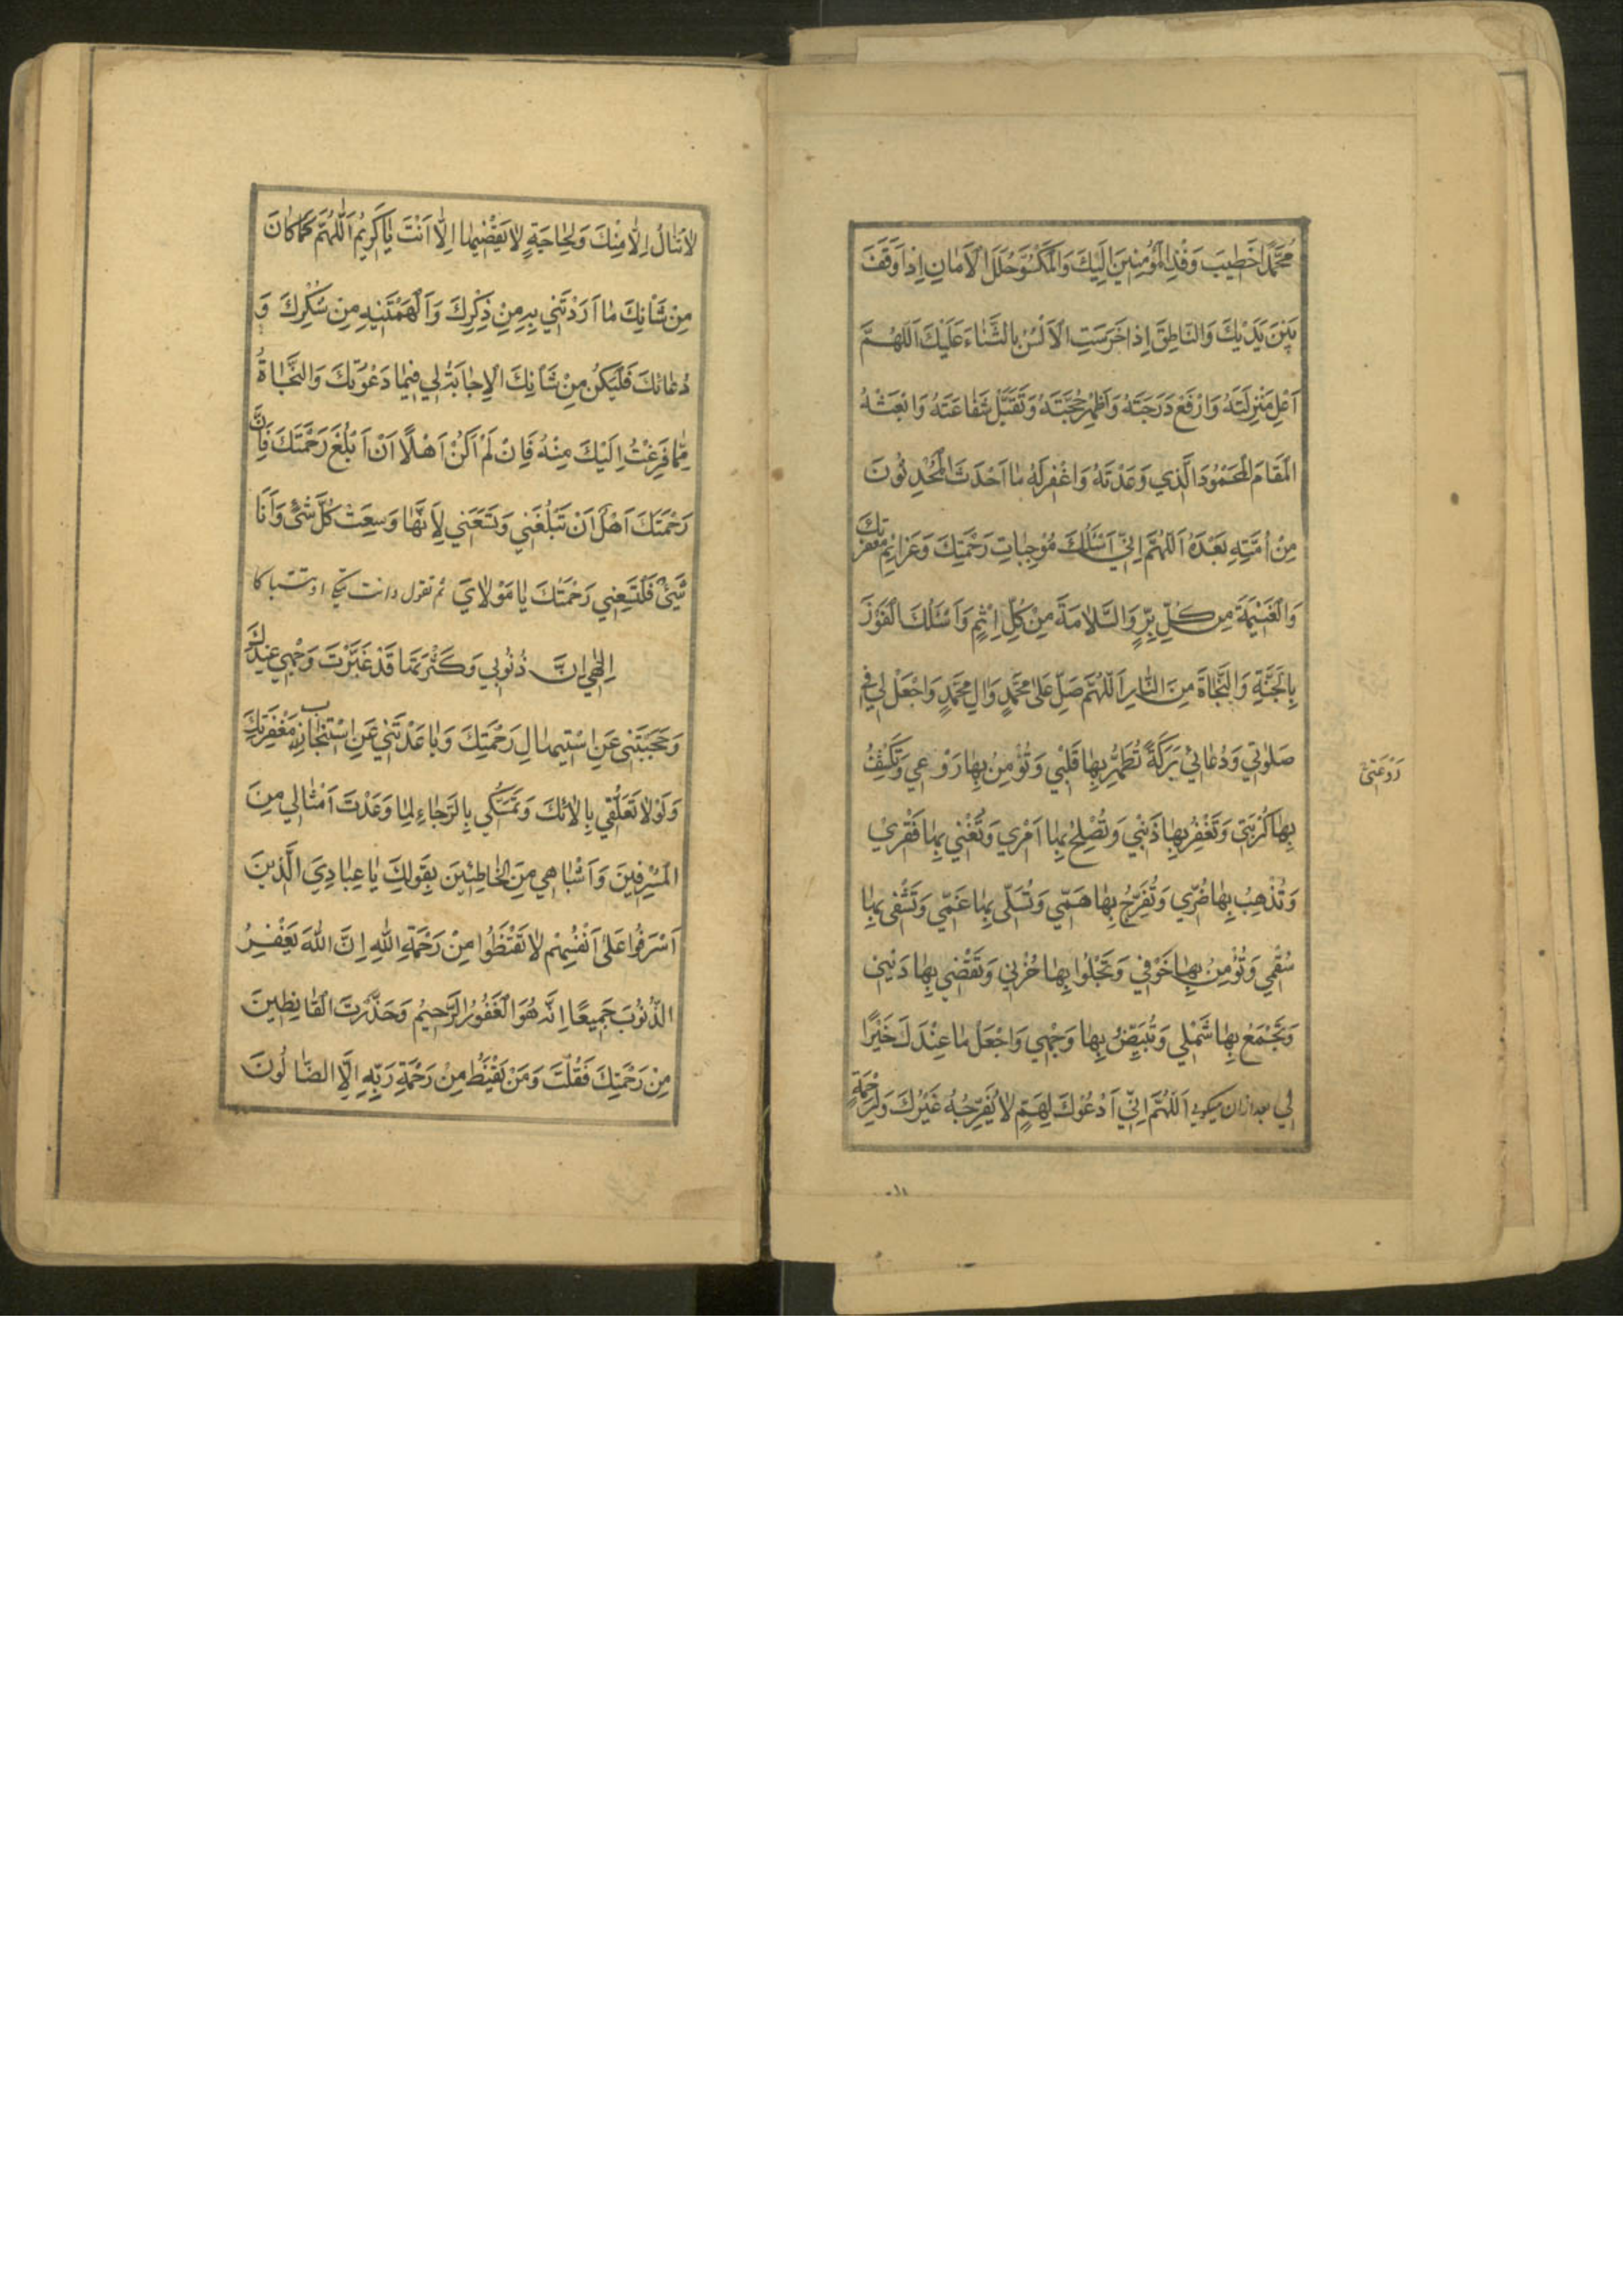 مُحَمَّدًا خَطِيبَ وَفْدِ الْمُؤْمِنِينَ اِلَيْكَ وَالْمَكْسُوَّ حُلَلَ الْاَمَانِ اِذَا وَقَفَ
بَيْنَ يَدَيْكَ وَالنَّاطِقَ اِذَا خَرَسَتِ الْاَلْسُنُ بِالثَّنَاءِ عَلَيْكَ اَللّٰهُمَّ
اَعْلِ مَنْزِلَتَهُ وَارْفَعْ دَرَجَتَهُ وَاَظْهِرْ حُجَّتَهُ وَتَقَبَّلْ شَفَاعَتَهُ وَابْعَثْهُ
الْمَقَامَ الْمَحْمُودَ الَّذِي وَعَدْتَهُ وَاغْفِرْ لَهُ مَا اَحْدَثَ الْمُحْدِثُونَ
مِنْ اُمَّتِهِ بَعْدَهُ اَللّٰهُمَّ اِنِّي اَسْئَلُكَ مُوجِبَاتِ رَحْمَتِكَ وَعَزَائِمَ مَغْفِرَتِكَ
وَالْغَنِيمَةَ مِنْ كُلِّ بِرٍّ وَالسَّلَامَةَ مِنْ كُلِّ اِثْمٍ وَاَسْئَلُكَ الْفَوْزَ
بِالْجَنَّةِ وَالنَّجَاةَ مِنَ النَّارِ اَللّٰهُمَّ صَلِّ عَلٰى مُحَمَّدٍ وَاٰلِ مُحَمَّدٍ وَاجْعَلْ لِي فِي
صَلٰوتِي وَدُعَائِي بَرَكَةً تُطَهِّرُ بِهَا قَلْبِي وَتُؤْمِنُ بِهَا رَوْعِي وَتَكْشِفُ
رَوْعَتِي
بِهَا كُرْبَتِي وَتَغْفِرُ بِهَا ذَنْبِي وَتُصْلِحُ بِهَا اَمْرِي وَتُغْنِي بِهَا فَقْرِي
وَتُذْهِبُ بِهَا ضُرِّي وَتُفَرِّجُ بِهَا هَمِّي وَتُسَلِّي بِهَا غَمِّي وَتَشْفِي بِهَا
سُقْمِي وَتُؤْمِنُ بِهَا خَوْفِي وَتَجْلُوا بِهَا حُزْنِي وَتَقْضِي بِهَا دَيْنِي
وَتَجْمَعُ بِهَا شَمْلِي وَتُبَيِّضُ بِهَا وَجْهِي وَاجْعَلْ مَا عِنْدَكَ خَيْرًا
لِي بعد ازان میکوید اَللّٰهُمَّ اِنِّي اَدْعُوكَ لِهَمٍّ لَا يُفَرِّجُهُ غَيْرُكَ وَلِرَحْمَةٍ
لَا تُنَالُ اِلَّا مِنْكَ وَلِحَاجَةٍ لَا يَقْضِيهَا اِلَّا اَنْتَ يَا كَرِيمُ اَللّٰهُمَّ كَمَا كَانَ
مِنْ شَاْنِكَ مَا اَرَدْتَنِي بِهِ مِنْ ذِكْرِكَ وَاَلْهَمْتَنِيهِ مِنْ شُكْرِكَ وَ
دُعَائِكَ فَلْيَكُنْ مِنْ شَاْنِكَ الْاِجَابَةُ لِي فِيمَا دَعَوْتُكَ وَالنَّجَاةُ
مِمَّا فَزِعْتُ اِلَيْكَ مِنْهُ فَاِنْ لَمْ اَكُنْ اَهْلًا اَنْ اَبْلُغَ رَحْمَتَكَ فَاِنَّ
رَحْمَتَكَ اَهْلٌ اَنْ تَبْلُغَنِي وَتَسَعَنِي لِاَنَّهَا وَسِعَتْ كُلَّ شَيْءٍ وَاَنَا
شَيْءٌ فَلْتَسَعْنِي رَحْمَتُكَ يَا مَوْلَايَ ثم تقول وانت
اِلٰهِي اِنَّ ذُنُوبِي وَكَثْرَتَهَا قَدْ غَبَّرَتْ وَجْهِي عِنْدَكَ
وَحَجَبَتْنِي عَنِ اسْتِيهَالِ رَحْمَتِكَ وَبَاعَدَتْنِي عَنِ اسْتِنْجَازِ مَغْفِرَتِكَ
وَلَوْلَا تَعَلُّقِي بِاٰلَائِكَ وَتَمَسُّكِي بِالرَّجَاءِ لِمَا وَعَدْتَ اَمْثَالِي مِنَ
الْمُسْرِفِينَ وَاَشْبَاهِي مِنَ الْخَاطِئِينَ بِقَوْلِكَ يَا عِبَادِيَ الَّذِينَ
اَسْرَفُوا عَلٰى اَنْفُسِهِمْ لَا تَقْنَطُوا مِنْ رَحْمَةِ اللّٰهِ اِنَّ اللّٰهَ يَغْفِرُ
الذُّنُوبَ جَمِيعًا اِنَّهُ هُوَ الْغَفُورُ الرَّحِيمُ وَحَذَّرْتَ الْقَانِطِينَ
مِنْ رَحْمَتِكَ فَقُلْتَ وَمَنْ يَقْنَطُ مِنْ رَحْمَةِ رَبِّهِ اِلَّا الضَّالُّونَ